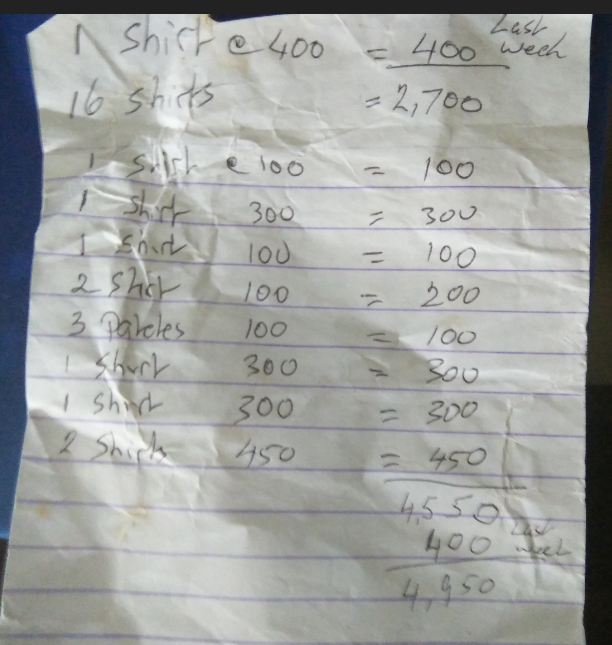 1 Shirt @ 400 = 400 Last week
16 Shirts = 2,700
1 Shirt @ 100 = 100
1 Shirt 300 = 300
1 Shirt 100 = 100
2 Shirt 100 = 200
3 Patches 100 = 100
1 Shirt 300 = 300
1 Shirt 300 = 300
2 Shirts 450 = 450
4,550
400 Last week
4,950